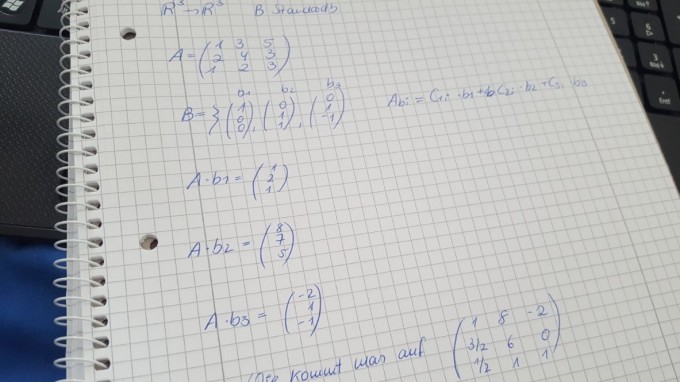 R³→R³ B Standardb
A = (1 3 5
2 4 3
1 2 3)
b1 b2 b3
B = {(1 0 0), (0 1 1), (0 1 -1)
Abi = C1i · b1 + C2i · b2 + C3i · b3
A · b1 = (1 2 1)
A · b2 = (8 7 5)
A · b3 = (-2 1 -1)
kommt man auf (1 8 -2
3/2 6 0
1/2 1 1)